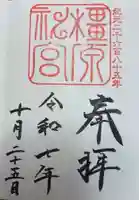 紀元二千六百八十五年
橿原神宮
奉拝
令和七年
十月二十五日